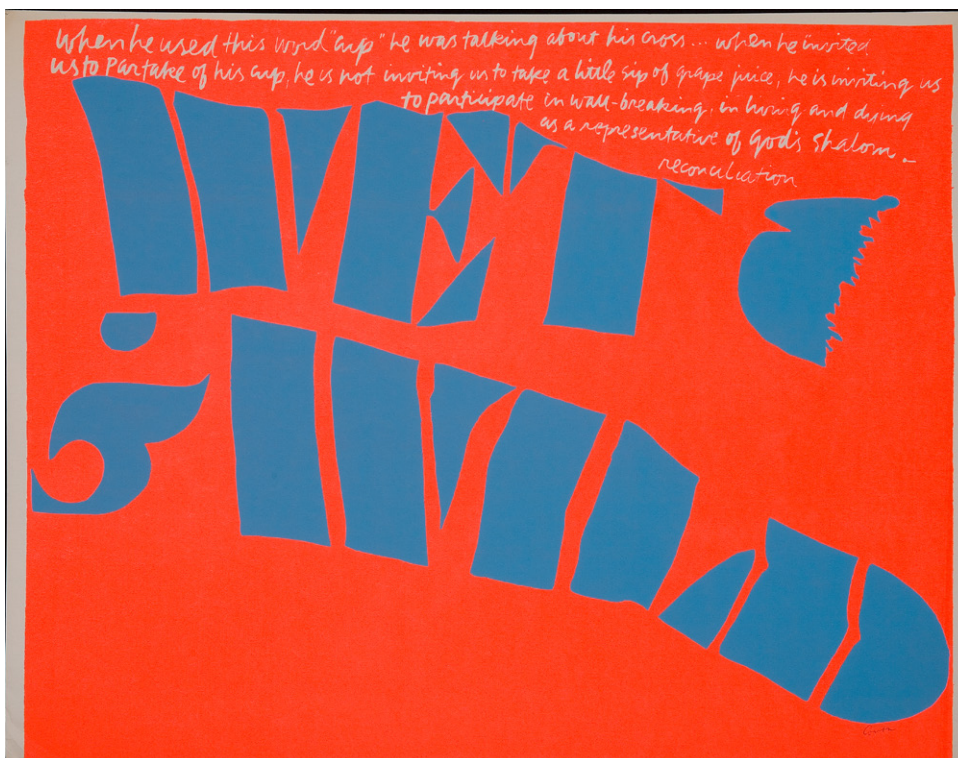 when he used this word "cup" he was talking about his cross... when he invited
us to Partake of his cup, he is not inviting us to take a little sip of grape juice, he is inviting us
to participate in wall-breaking, in living and dying
as a representative of god's shalom -
reconciliation
WET
& WILD